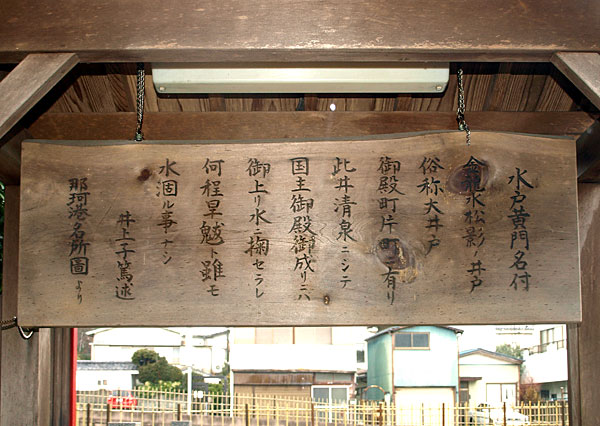 水戸黄門名付
金龍水松影ノ井戸
俗称大井戸
御殿町片町ニ有リ
此井清泉ニシテ
国主御殿御成リニハ
御上リ水ニ掬セラレ
何程旱魃ト雖モ
水涸ル事ナシ
井上子篤述
那珂港名所圖より